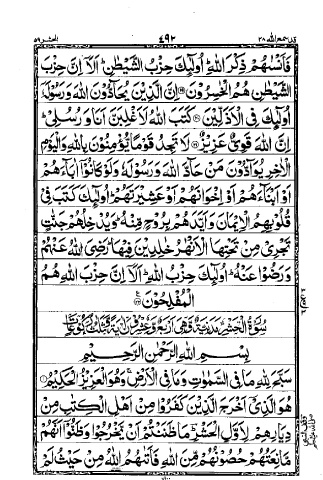 قد سمع الله ٢٨
٤٩٢
الحشر ٥٩
فَاَنْسٰىهُمْ ذِكْرَ اللّٰهِ ؕ اُولٰٓئِكَ حِزْبُ الشَّيْطٰنِ ؕ اَلَاۤ اِنَّ حِزْبَ
الشَّيْطٰنِ هُمُ الْخٰسِرُوْنَ ۝ اِنَّ الَّذِيْنَ يُحَآدُّوْنَ اللّٰهَ وَرَسُوْلَهٗۤ
اُولٰٓئِكَ فِي الْاَذَلِّيْنَ ۝ كَتَبَ اللّٰهُ لَاَغْلِبَنَّ اَنَا وَرُسُلِيْ ؕ
اِنَّ اللّٰهَ قَوِيٌّ عَزِيْزٌ ۝ لَا تَجِدُ قَوْمًا يُّؤْمِنُوْنَ بِاللّٰهِ وَالْيَوْمِ
الْاٰخِرِ يُوَآدُّوْنَ مَنْ حَآدَّ اللّٰهَ وَرَسُوْلَهٗ وَلَوْ كَانُوْۤا اٰبَآءَهُمْ
اَوْ اَبْنَآءَهُمْ اَوْ اِخْوَانَهُمْ اَوْ عَشِيْرَتَهُمْ ؕ اُولٰٓئِكَ كَتَبَ فِيْ
قُلُوْبِهِمُ الْاِيْمَانَ وَاَيَّدَهُمْ بِرُوْحٍ مِّنْهُ ؕ وَيُدْخِلُهُمْ جَنّٰتٍ
تَجْرِيْ مِنْ تَحْتِهَا الْاَنْهٰرُ خٰلِدِيْنَ فِيْهَا ؕ رَضِيَ اللّٰهُ عَنْهُمْ
وَرَضُوْا عَنْهُ ؕ اُولٰٓئِكَ حِزْبُ اللّٰهِ ؕ اَلَاۤ اِنَّ حِزْبَ اللّٰهِ هُمُ
الْمُفْلِحُوْنَ ۝
سُوْرَةُ الْحَشْرِ مَدَنِيَّةٌ وَّهِيَ اَرْبَعٌ وَّعِشْرُوْنَ اٰيَةً وَّثَلٰثُ رُكُوْعَاتٍ
بِسْمِ اللّٰهِ الرَّحْمٰنِ الرَّحِيْمِ
سَبَّحَ لِلّٰهِ مَا فِي السَّمٰوٰتِ وَمَا فِي الْاَرْضِ ۚ وَهُوَ الْعَزِيْزُ الْحَكِيْمُ ۝
هُوَ الَّذِيْۤ اَخْرَجَ الَّذِيْنَ كَفَرُوْا مِنْ اَهْلِ الْكِتٰبِ مِنْ
دِيَارِهِمْ لِاَوَّلِ الْحَشْرِ ؕ مَا ظَنَنْتُمْ اَنْ يَّخْرُجُوْا وَظَنُّوْۤا اَنَّهُمْ
مَّانِعَتُهُمْ حُصُوْنُهُمْ مِّنَ اللّٰهِ فَاَتٰىهُمُ اللّٰهُ مِنْ حَيْثُ لَمْ